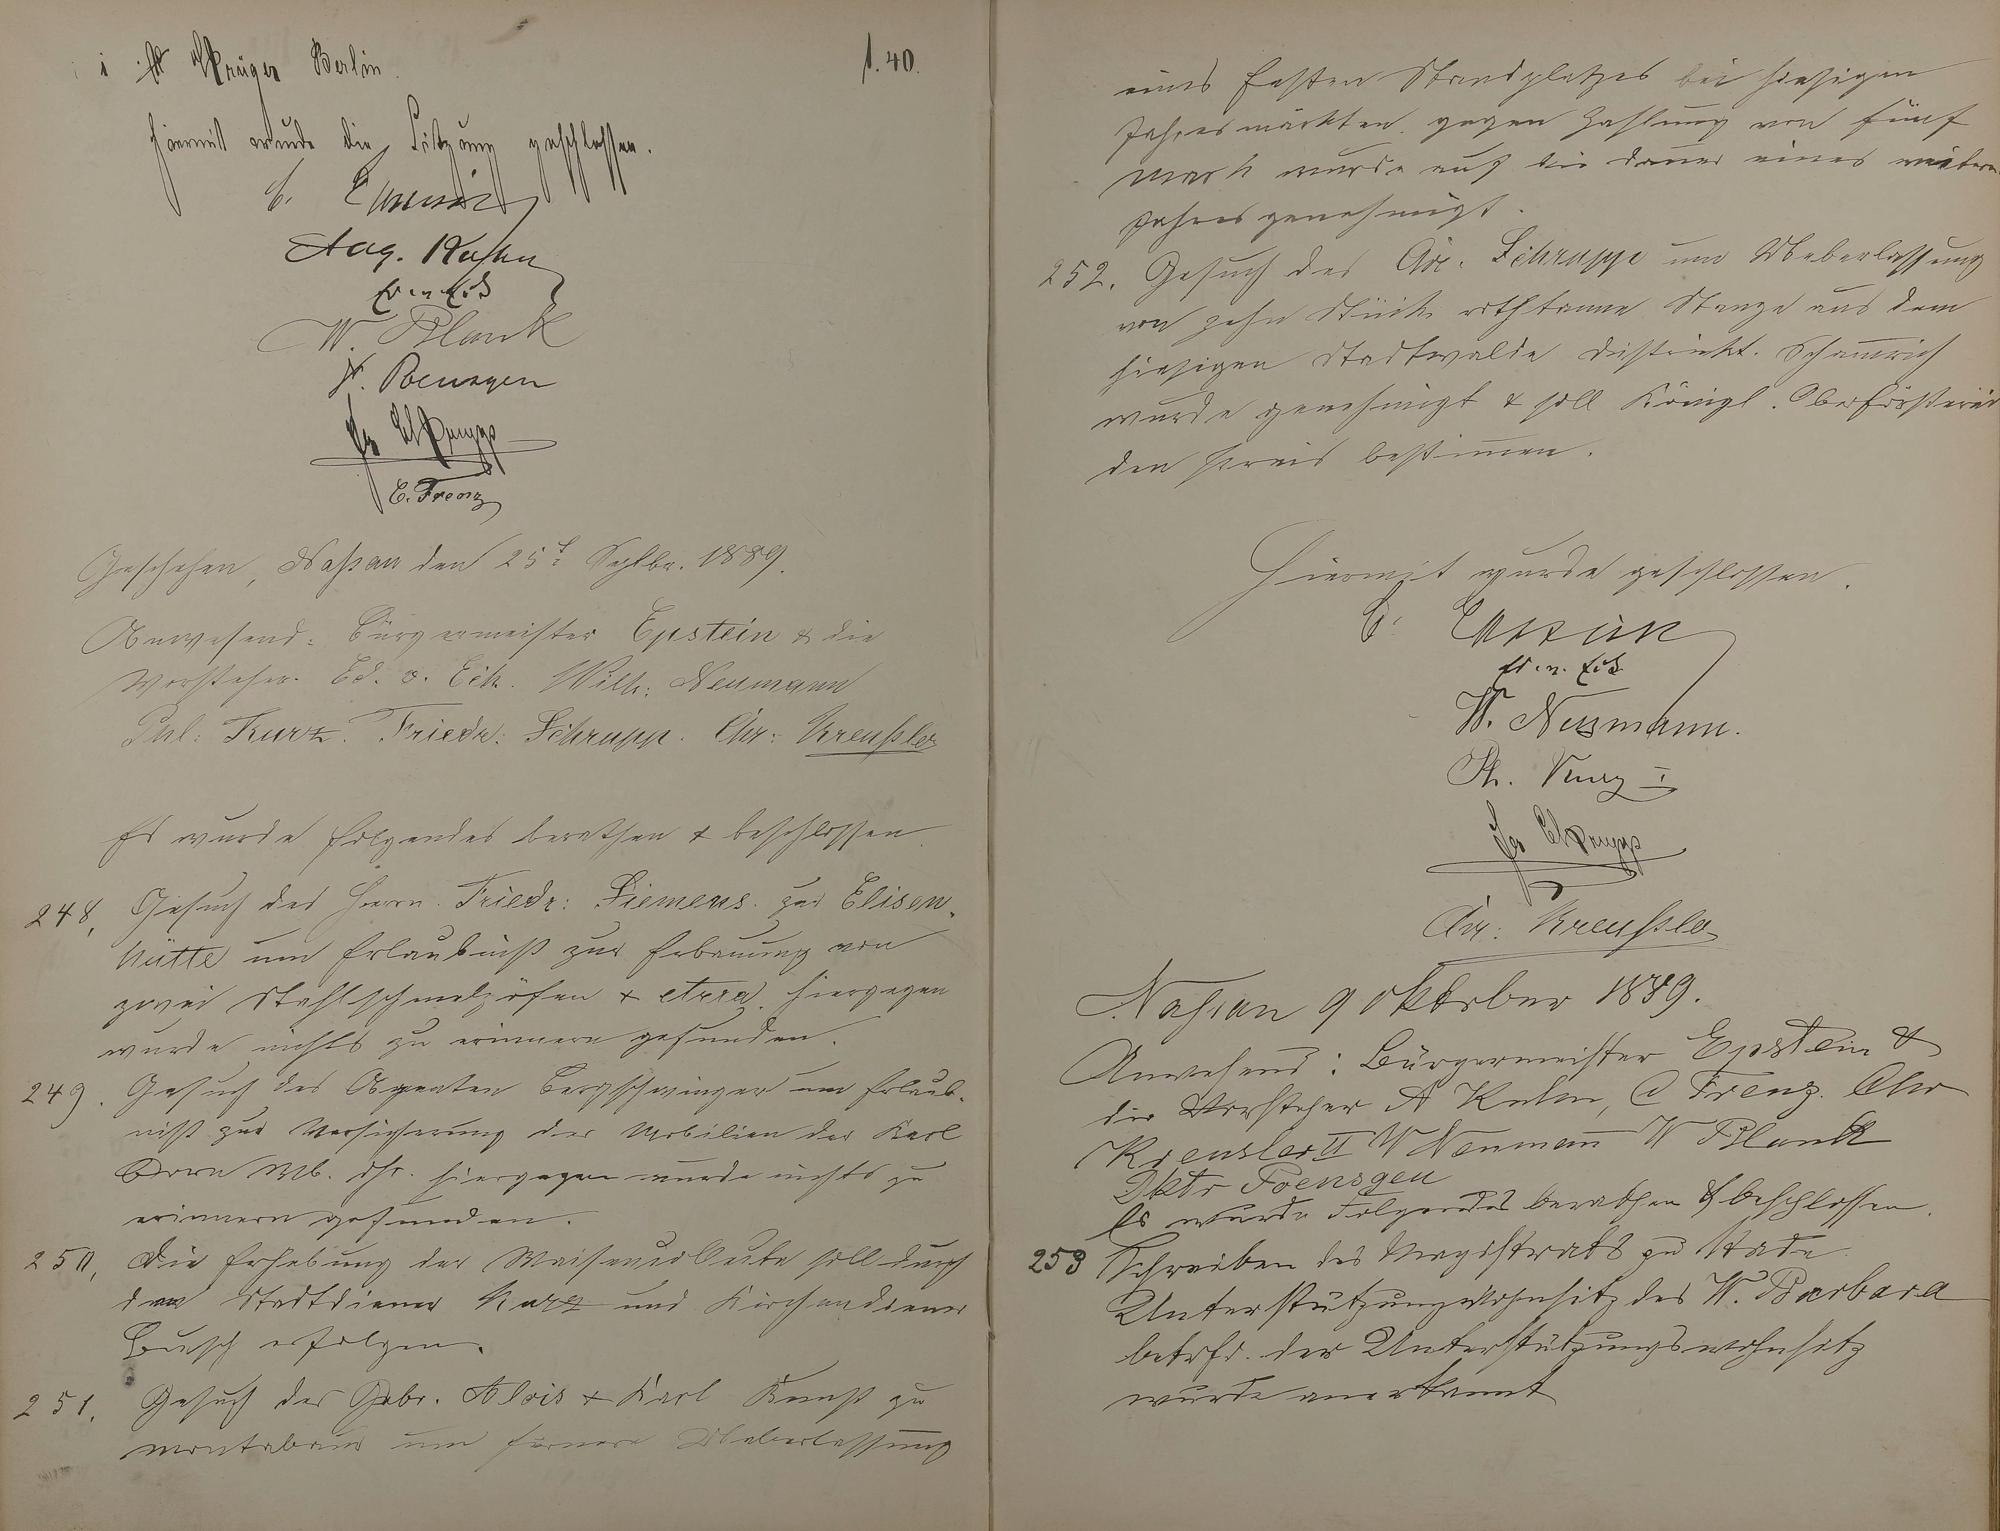 Krüger Berlin. 1.40.
Hiermit wurde die Sitzung geschlossen.
E. Epstein
Aug. Kuhn
Ed. v. Eck
W. Plank
Poensgen
Fr Schrupp
C. Frenz
Geschehen, Naßau den 25t Septbr. 1889.
Anwesend: Bürgermeister Epstein & die
Vorsteher Ed. v. Eck. Wilh: Neumann
Phl: Kurz. Friedr: Schrupp. Chr: Kreußler
Es wurde folgendes berathen & beschlossen
248, Gesuch des Herrn Friedr: Siemens zur Elisen-
hütte um Erlaubniß zur Erbauung von
zwei Stahlschmelzöfen & hiergegen
wurde nichts zu erinnern gefunden.
249. Gesuch des Agenten um Erlaub-
niß zur Versicherung der Mobilien der Karl
hiergegen wurde nichts zu
erinnern gefunden.
250, Die Erhebung der soll durch
den Stadtdiener Kurz und Kirchendiener
Busch erfolgen.
251, Gesuch der Gebr. Alois & Karl Kunst zu
Montabaur um fernere Ueberlassung
eines festen Standplatzes bei hiesigen
Jahresmärkten gegen Zahlung von fünf
Mark wurde auf die Dauer eines weitern
Jahres genehmigt.
252. Gesuch des Schrupp um Ueberlassung
von zehn Stück rothtanne Stange aus dem
hiesigen Stadtwalde District
wurde genehmigt & soll Königl. Oberförsterei
den Preis bestimmen.
Hiermit wurde geschlossen.
E. Epstein
Ed. v. Eck
W. Neumann.
Ph. Kurz I
Fr Schrupp
Chr: Kreußler
Naßau 9 Oktober 1889.
Anwesend: Bürgermeister Epstein &
die Vorsteher A Kuhn, C Frenz. Chr
Kreusler II W Neumann W Plank
Poensgen
Es wurde Folgendes berathen & beschlossen.
253 Schreiben des Magistrats zu Stade
Unterstützungswohnsitz des W. Barbara
betrfd. der Unterstützungswohnsitz
wurde anerkannt